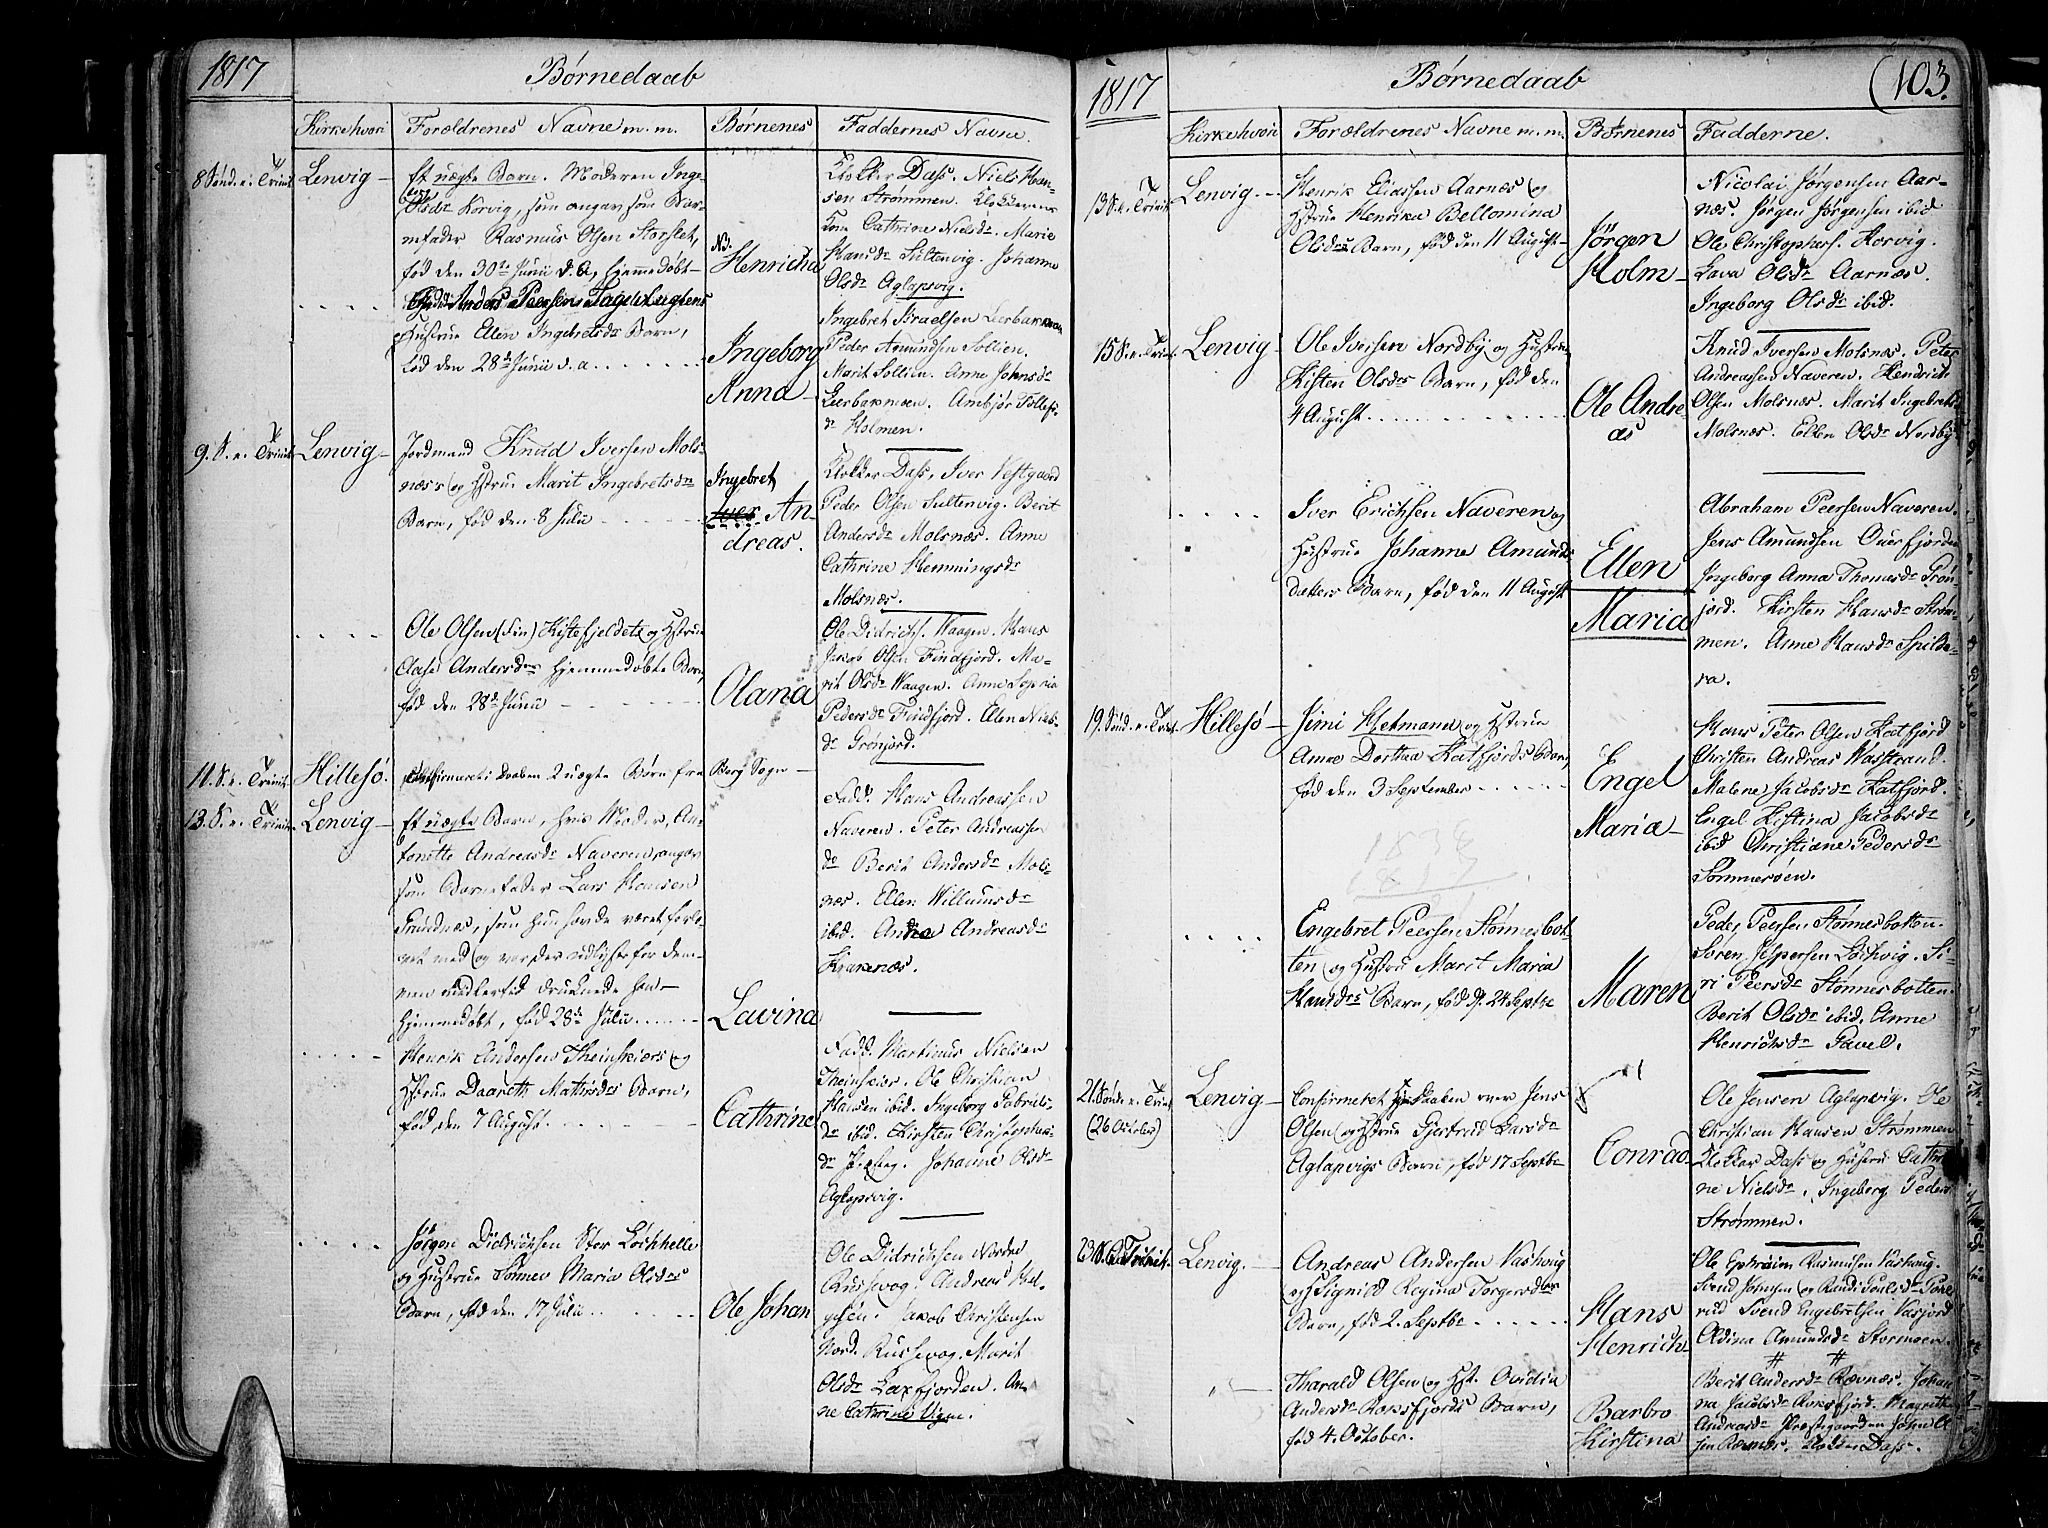 1817
Børnedaab
Kirke hvori
Forældrenes Navne m. m.
Børnenes
Faddernes Navne.
8 Sønd. e. Trinit
Lenvig
Et uægte Barn. Moderen Inge-
borg Olsdr Korvig, som angav som Bar-
nefader Rasmus Olsen Storslet,
fød den 30te Junii d. a, hjemmedøbt
Nd.
Henricha
Klokker Dass. Niels Han-
sen Strømmen. Klokkerens
Kone Cathrina Nielsdr. Marie
Hansdr Sultenvig. Johanne
Olsdr Aglapsvig.
Anders Peersens
Hustrue Ellen Ingebretsdr Barn,
fød den 28de Junii d. a.
Ingeborg
Anna
Ingebret Israelsen Leerbakmoen
Peder Amundsen Sollien.
Marit Sollien. Anne Johnsdr
Leerbakmoen. Ambjør Tollefs-
dr Holmen.
9. S. e. Trinit
Lenvig
Jordmand Knud Iversen Mols-
næs's og Hstrue Marit Ingebretsdrs
Barn, fød den 8 Julii
Ingebret
Iver An-
dreas.
Klokker Dass, Iver Vestgaard
Peder Olsen Sultenvig. Berit
Andersdr Molsnæs. Anne
Cathrine Hemmingsdr
Molsnæs.
Ole Olsen (Fin) Kistefjeldets og Hstrue
Aase Andersdrs hjemmedøbte Barn,
fød den 28de Junii
Olana
Ole Didrichs. Waagen. Hans
Jacob Olsen Findfjord. Ma-
rit Olsdr Waagen. Anne Sopvia
Pedersdr Findfjord. Elen Niels-
dr Grønjord.
11. S. e. Trinit.
Hillesø.
Confirmeret Daaben 2 uægte Børn fra Berg Sogn
13. S. e. Trinit
Lenvig
Et uægte Barn, hvis Moder, An-
tonette Andreasdr Naveren, angav
som Barnefader Lars Hansen
Grundnæs, som hun havde været forlo-
vet med og var der udlyste for dem,
men midlertid druknede han
hjemmedøbt, fød 28de Julii
Lavina
Fadd. Hans Andreassen
Naveren. Peter Andreassen
do Berit Andersdr Mols-
næs. Ellen Willumsdr
ibid. Andrea Andreasdr
Krakenæs.
Henrik Andersen Theinskiærs og
Hstrue Dareth Mathisdrs Barn,
fød den 7 August.
Cathrine
Fadd. Martinus Nielsen
Theinskiær. Ole Christian
Hansen ibid. Ingeborg Gabriels-
dr ibid. Kirsten Christophers-
dr. Johanne Olsdr
Aglapsvig.
Jørgen Didrichsen Stor Lochhelle
og Hustrue Sønnev Maria Olsdrs
Barn, fød den 17 Julii
Ole Johan
Ole Didrichsen Nordre
Russevog. Andreas Hel-
gesen. Jakob Christensen
Nord. Russevog. Marit
Olsdr Laxfjorden. An-
ne Cathrine Vigen.
1817
Børnedaab
(103.
Kirke hvori
Forældrenes Navne m. m.
Børnenes
Fadderne.
13 S. e. Trinit
Lenvig
Henrik Eliassen Aarnæs og
Hstrue Henrika Bellomina
Olsdrs Barn, fød den 11 August
Jørgen
Holm
Nicolai Jørgensen Aar-
næs. Jørgen Jørgensen ibid
Ole Christophers. Korvig.
Lava Olsdr Aarnæs.
Ingeborg Olsdr ibid.
15 S. e. Trinit
Lenvig
Ole Iversen Nordby og Hustrue
Kisten Olsdrs Barn, fød den
4 August
Ole Andre-
as
Knud Iversen Molsnæs. Peter
Andreassen Naveren. Hendrich
Olsen Molsnæs. Marit Ingebretsdr
Molsnæs. Ellen Olsdr Nordby
Iver Erichsen Naveren og
Hustrue Johanne Amunds
datters Barn, fød den 11 August
Ellen
Maria
Abraham Peersen Naveren.
Jens Amundsen Ouerfjorden
Ingeborg Anna Thomasdr Grøn-
jord. Kirsten Hansdr Strøm-
men. Anne Hansdr Spilde-
ra.
19. Sønd. e. Trinit
Hillesø
Jimi Hetmann og Hstrue
Anne Dorthea Katfjords Barn,
fød den 3 September
Engel
Maria
Hans Peter Olsen Katfjord
Christen Andreas Wasstrand.
Malene Jacobsdr Katfjord.
Engel Kistina Jacobsdr
ibid Christiane Pedersdr
Sommerøen.
1834
1817
Engebret Peersen Stønnesbot-
ten og Hustru Marit Maria
Hansdrs Barn, fød d. 24 Septbr
Maren
Peder Peersen Stønnesbotten.
Søren Jespersen Lochvig. Si-
ri Peersdr Stønnesbotten.
Berit Olsdr ibid. Anne
Henrichsdr Gavel.
21. Sønd. e. Trinit
(26 October)
Lenvig
Confirmeret Daaben over Jens
Olsen og Hstrue Gjertrud Larsdr
Aglapvigs Barn, fød 17 Septbr
Conrad
Ole Jensen Aglapsvig. Ole
Christian Hansen Strømmen
Klokker Dass og Hustru Cathri-
ne Nielsdr. Ingeborg Peders
Strømmen.
23 S. e. Trinit.
Lenvig.
Andreas Andersen Vashoug
og Signild Regina Torgersdrs
Barn, fød 2. Septbr
Hans
Henrich
Ole Ephraim Rasmusen Vashoug.
Svend Johnsen og Randi Poulsdr
Svend Engebretsen Vasjord
Oldina Amundsdr Stormoen.
Tharald Olsen og Hst. Ovidia
Andersdr Roksfjords Barn,
fød 4. October.
Barbro
Kirstina
Berit Andersdr Rævnæs. Johan-
na Jacobsdr Roksfjord. Magrethe
Andreasdr Præstegaarden John Ol-
sen Rævnæs. Klokker Dass.